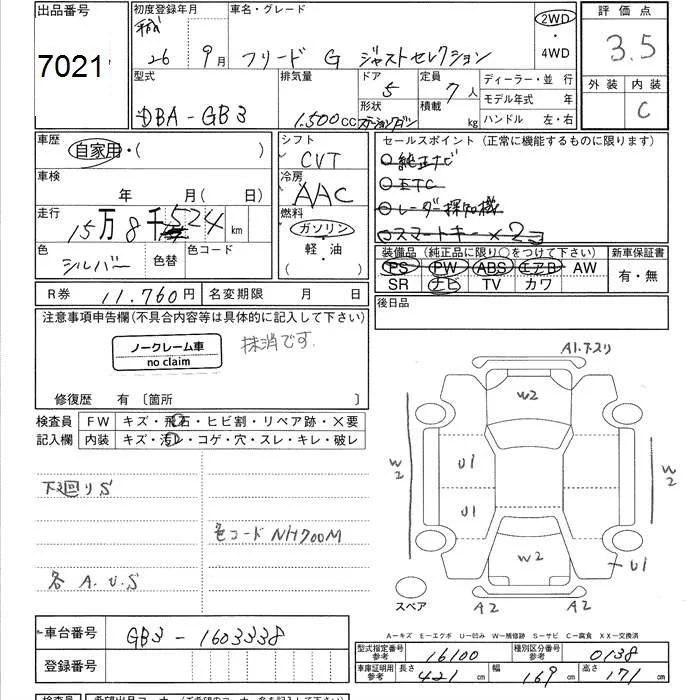 出品番号 7021
初度登録年月 平成 26年 9月
車名・グレード フリード G ジャストセレクション
2WD・4WD
評価点 3.5
外装 内装 C
型式 DBA-GB3
排気量 1.500cc
ドア 5
形状 ステーションワゴン
定員 7人
積載 kg
ディーラー・並行
モデル年式 年
ハンドル 左・右
車歴 自家用・( )
車検 年 月( 日)
走行 15万8千524km
色 シルバー 色替 色コード
シフト CVT
冷房 AAC
燃料 ガソリン・軽・油
セールスポイント(正常に機能するものに限ります)
○純正ナビ
○ETC
○レーダー探知機
○スマートキー×2コ
装備品(純正品に限り○をつけて下さい)
PS PW ABS エアB AW
SR ナビ TV カワ
新車保証書 有・無
後日品
R券 11.760円 名変期限 月 日
注意事項申告欄(不具合内容等は具体的に記入して下さい)
ノークレーム車
no claim
抹消です.
修復歴 有 〔箇所 〕
検査員記入欄
FW キズ・飛石・ヒビ割・リペア跡・X要
内装 キズ・汚レ・コゲ・穴・スレ・キレ・破レ
下回りS
色コード NH700M
各 A.U.S
A1.アスリ
W2
W2
U1
U1
W2
W2
U1
A2
A2
スペア
A-キズ E-エクボ U-凹み W-補修跡 S-サビ C-腐食 XX-交換済
車台番号 GB3-1603338
登録番号
型式指定番号参考 16100 種別区分番号参考 0138
車庫証明用参考 長さ 421cm 幅 169cm 高さ 171cm
検査員 希望出品コーナー(ご希望のコーナー名を記入して下さい)